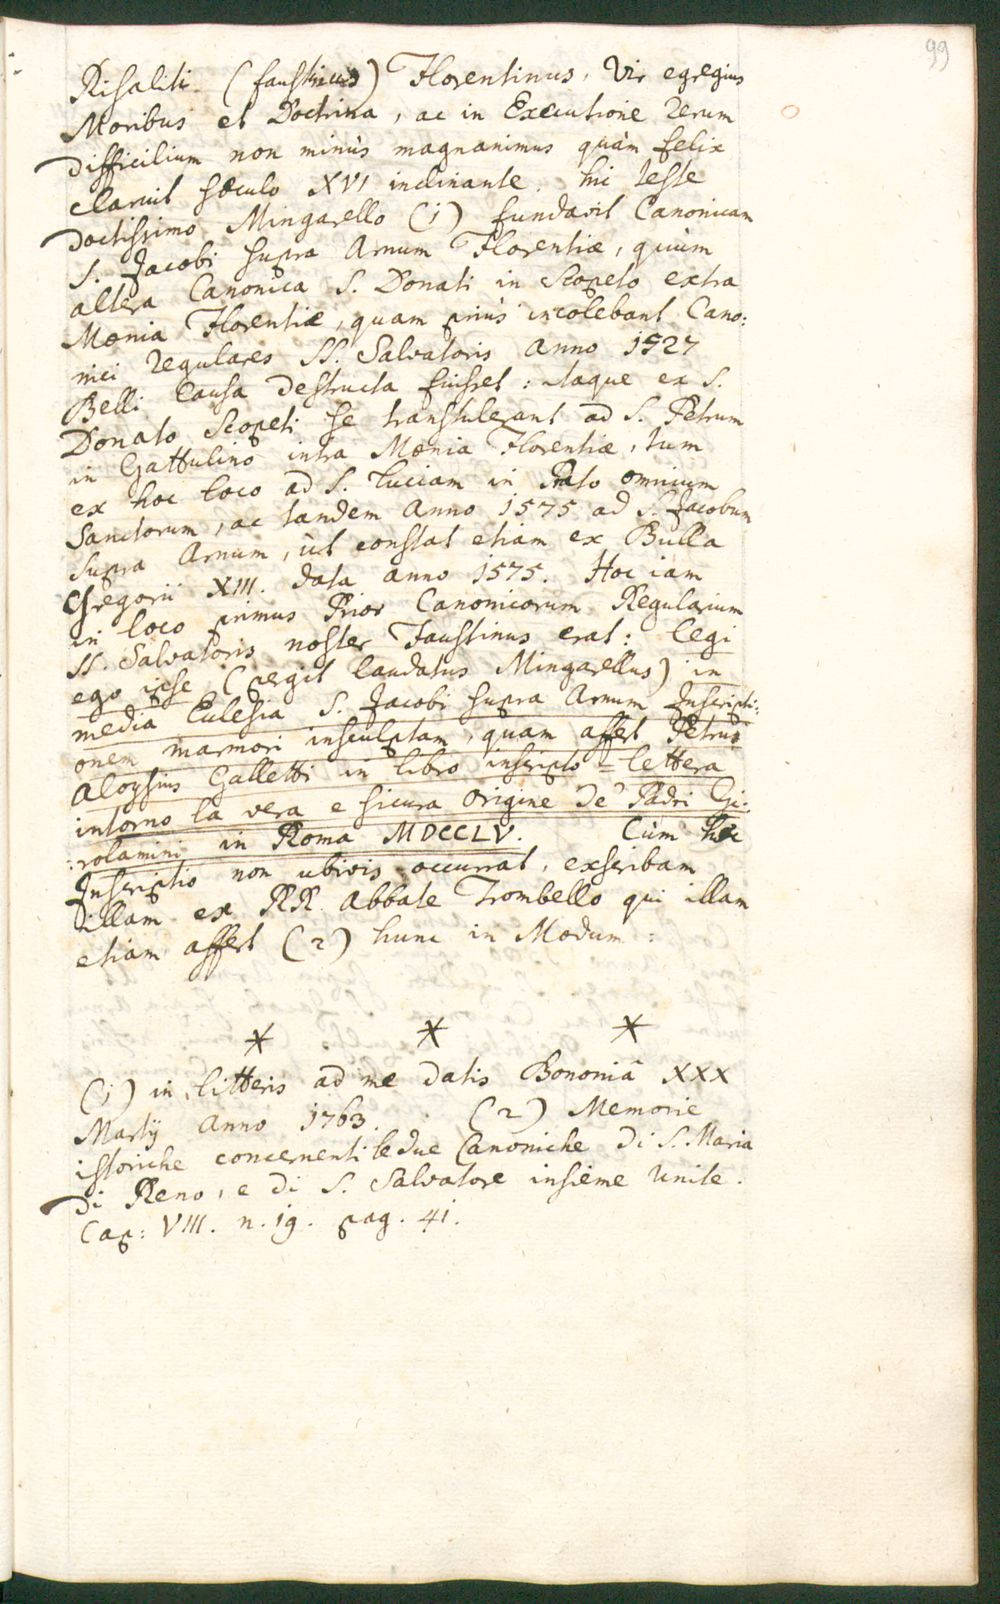 99
Risaliti (faustinus) Florentinus, Vir egregius
Moribus et Doctrina, ac in Executione rerum
difficilium non minùs magnanimus quàm felix
claruit sæculo XVI inclinante. hic teste
doctissimo Mingarello (1) fundavit Canonicam
S. Jacobi supra Arnum Florentiæ, quùm
altera Canonica S. Donati in Scopeto extra
Mœnia Florentiæ, quam priùs incolebant Cano:
nici regulares SS. Salvatoris anno 1527
Belli causa destructa fuisset: itaque ex S.
Donato Scopeti se transtulerant ad S. Petrum
in Gattulino intra Mœnia Florentiæ, tum
ex hoc loco ad S. Luciam in Prato omnium
Sanctorum, ac tandem Anno 1575 ad S. Jacobum
supra Arnum, ùt constat etiam ex Bulla
Gregorii XIII. data anno 1575. Hoc iam
in loco primus Prior Canonicorum Regularium
SS. Salvatoris noster Faustinus erat: legi
ego ipse (pergit laudatus Mingarellus) in
media Eulesia S. Jacobi supra Arnum Inscripti:
onem marmori insculptam, quam affert Petrus
Aloysius Galletti in libro inscripto = lettera
intorno la vera e sicura origine de' Padri Gi:
:rolamini in Roma MDCCLV. Cùm hæc
Inscriptio non ubivis occurrat, exscribam
illam ex RR. Abbate Trombello qui illam
etiam affert (2) hunc in Modum:
* * *
(1) in litteris ad me datis Bononiâ XXX
Martij Anno 1763. (2) Memorie
istoriche concernenti le due Canoniche di S. Maria
di Reno, e di S. Salvatore insieme unite.
Cap: VIII. n. 19. pag. 41.